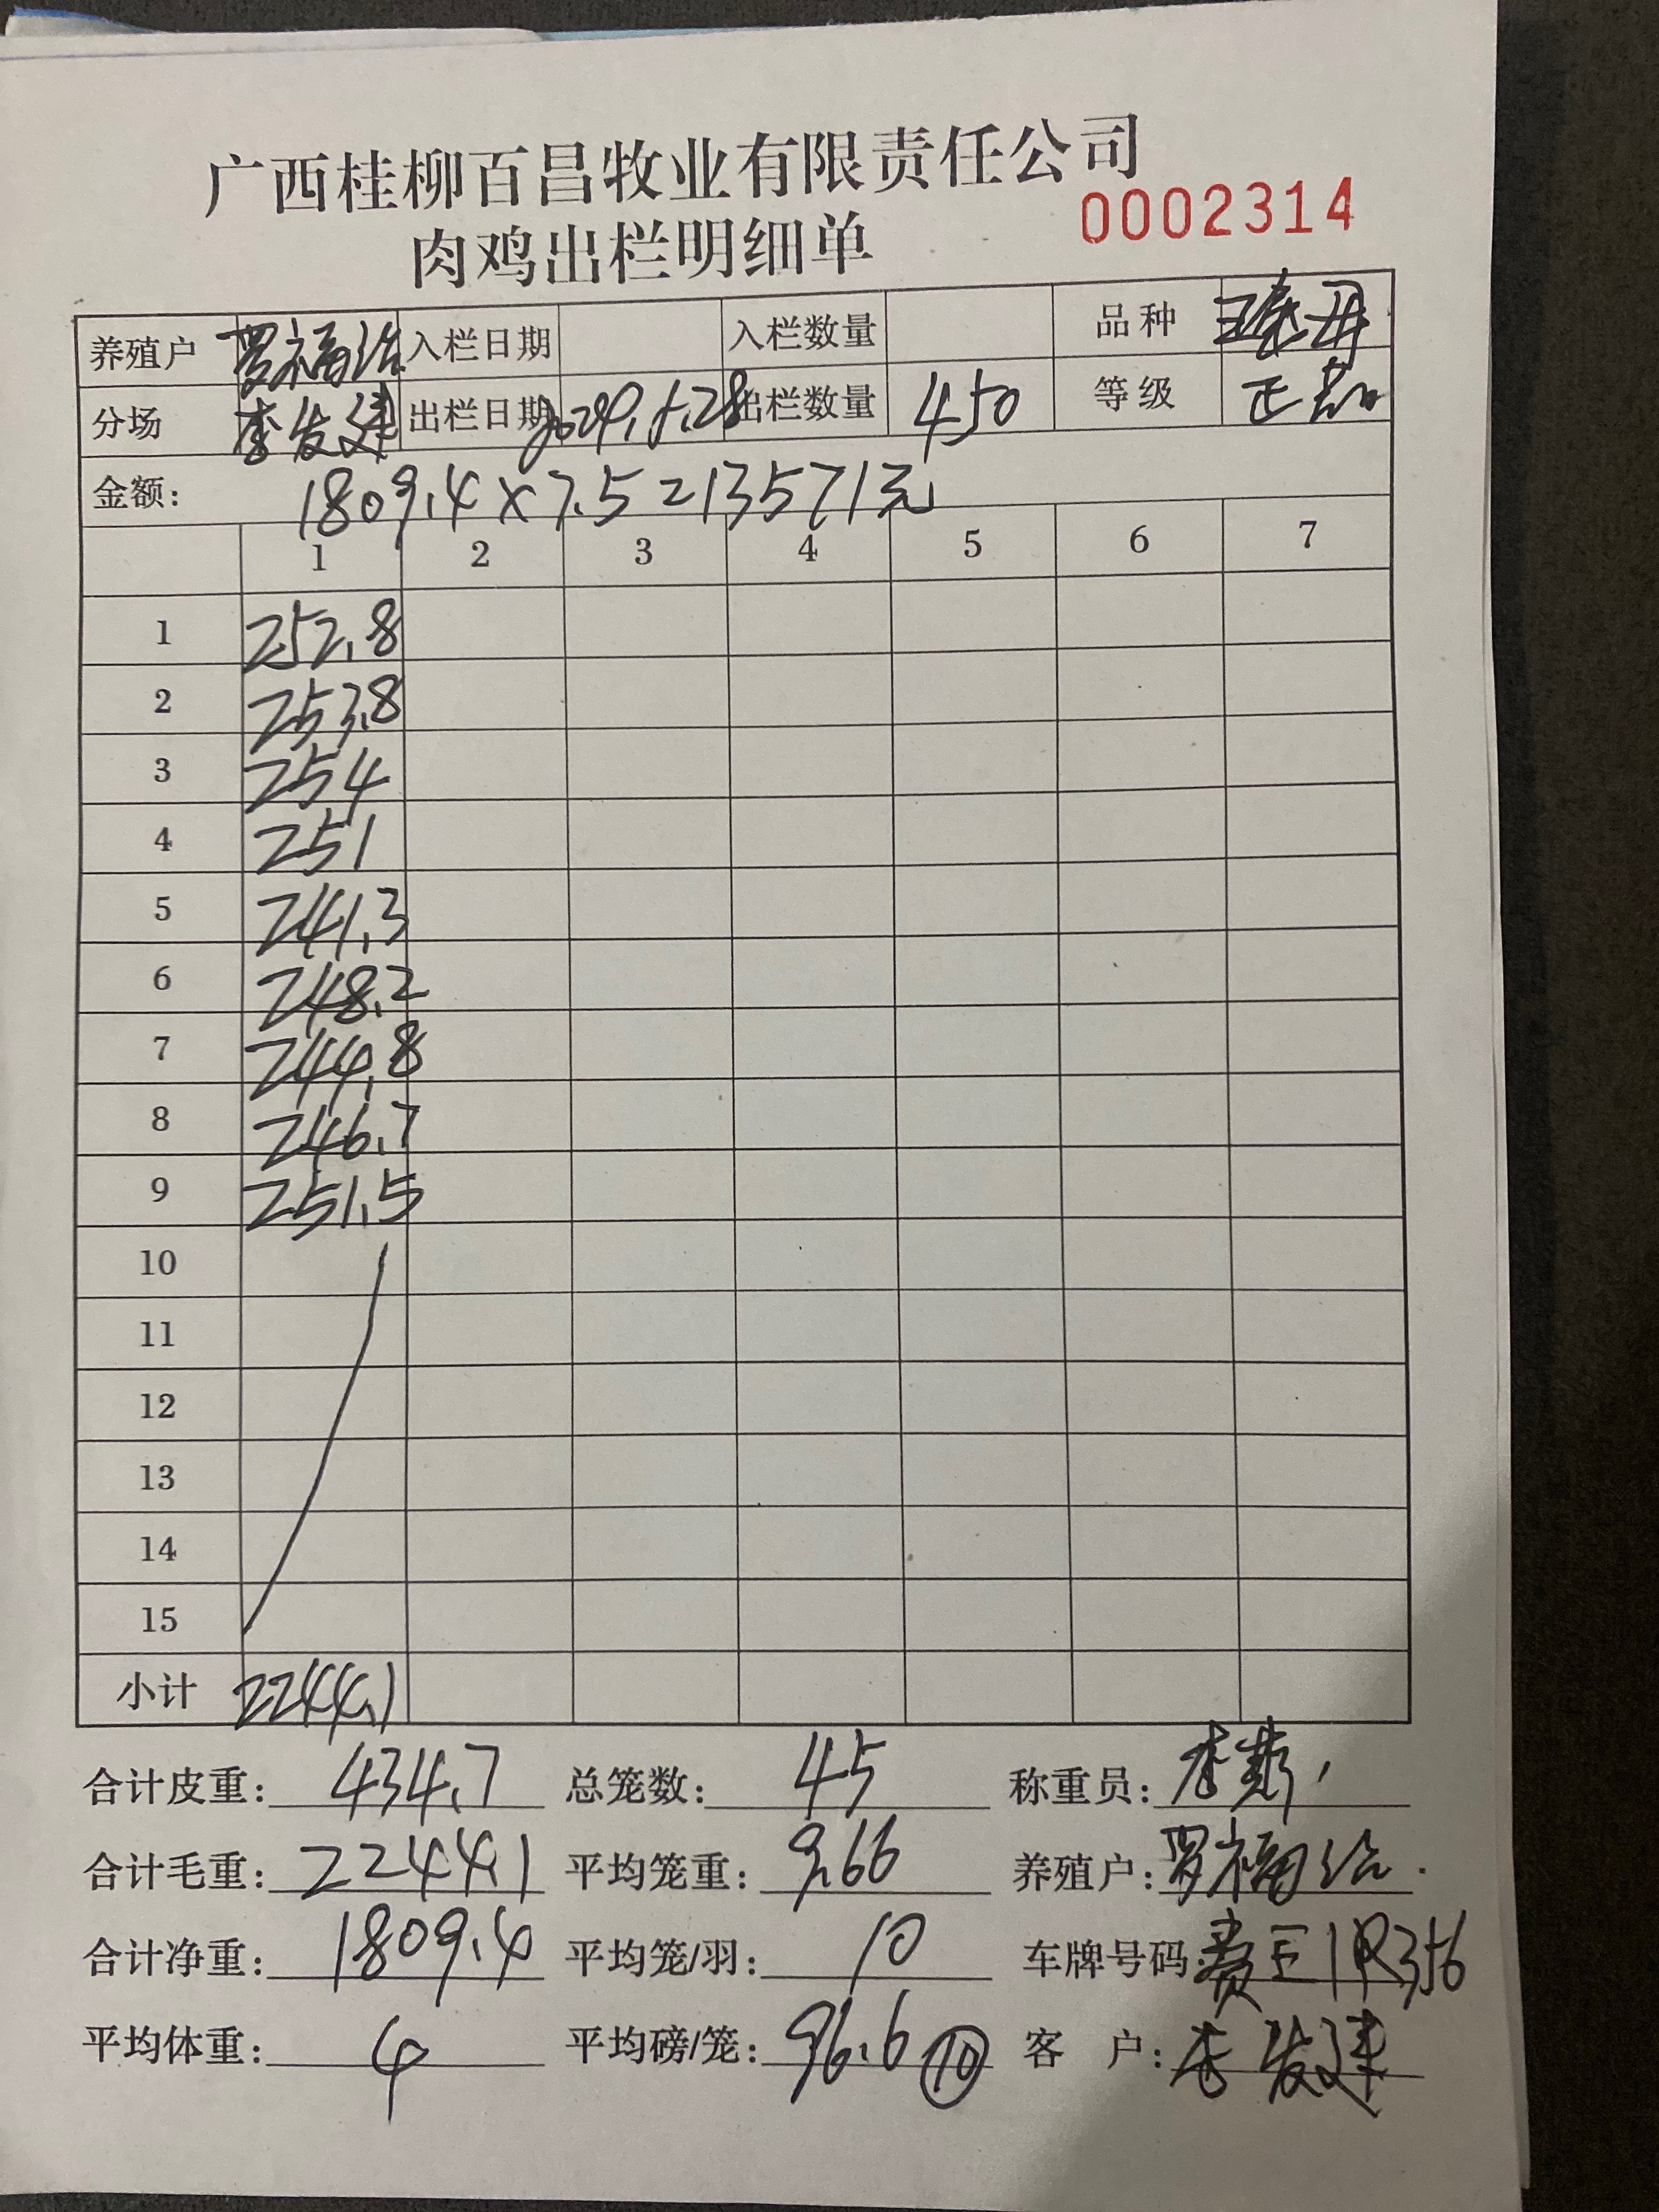 广西桂柳百昌牧业有限责任公司
肉鸡出栏明细单
0002314
养殖户 罗福治 入栏日期 入栏数量 品种
分场 李发建 出栏日期 2024.5.28 出栏数量 450 等级
金额: 1809.4×7.5=13571元
1 2 3 4 5 6 7
1 252.8
2 253.8
3 254
4 251
5 241.3
6 248.2
7 244.8
8 246.7
9 251.5
10
11
12
13
14
15
小计 2244.1
合计皮重: 434.7 总笼数: 45 称重员: 李
合计毛重: 2244.1 平均笼重: 9.66 养殖户: 罗福治
合计净重: 1809.4 平均笼/羽: 10 车牌号码: 贵E1R356
平均体重: 4 平均磅/笼: 96.6 10 客 户: 李发建